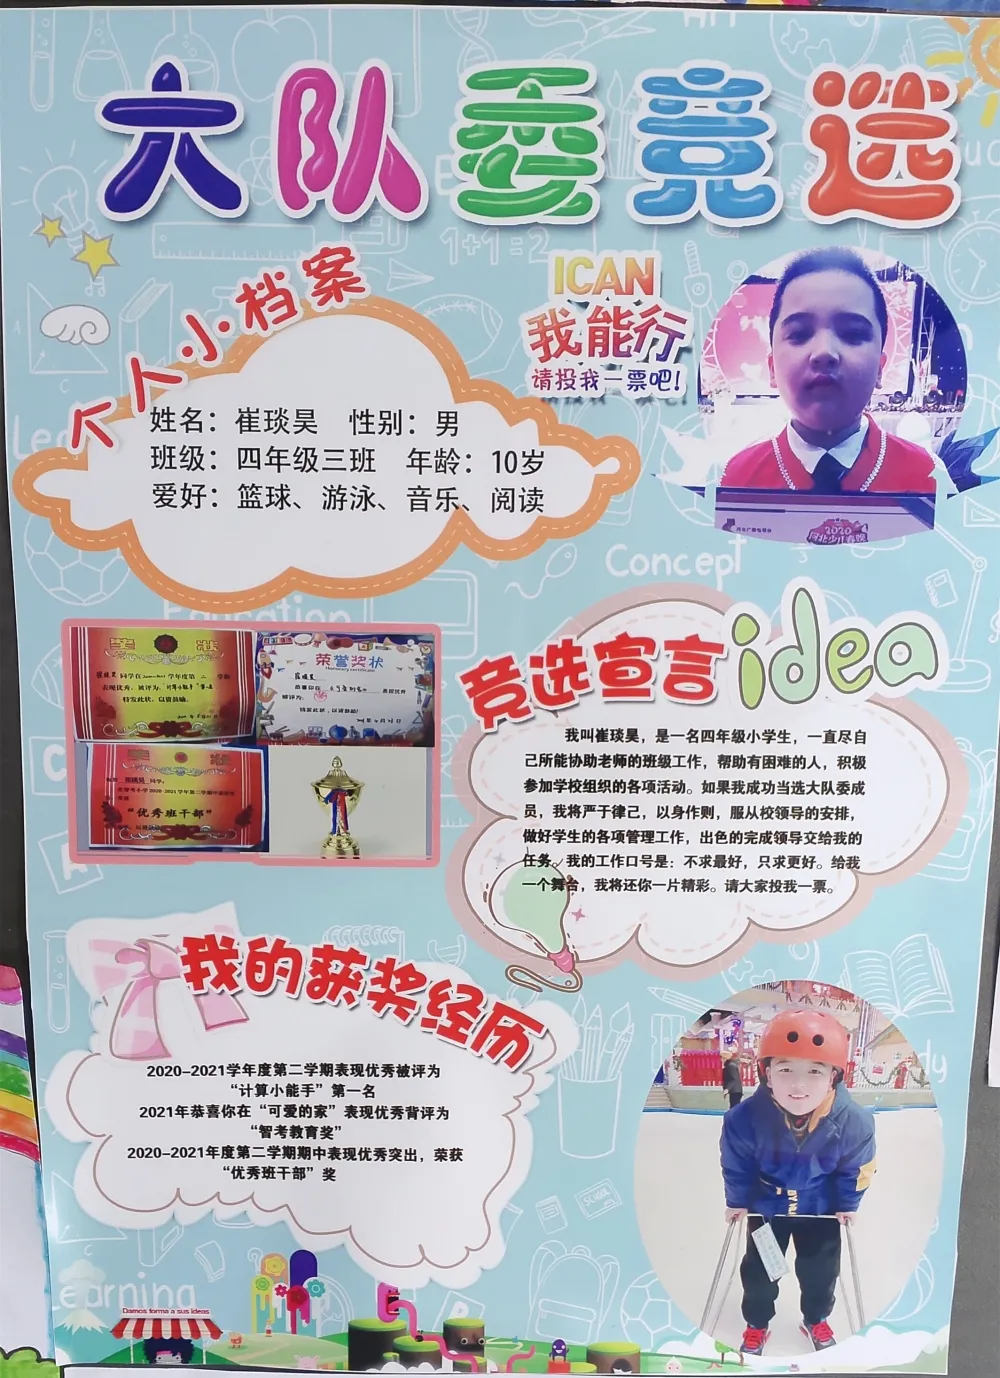 大队委竞选
1+1=2
个人小档案
ICAN
我能行
请投我一票吧!
姓名：崔琰昊 性别：男
班级：四年级三班 年龄：10岁
爱好：篮球、游泳、音乐、阅读
2020
河北少儿春晚
Concept
Education
奖状
荣誉奖状
特发此状，以资鼓励。
“优秀班干部”
竞选宣言
idea
我叫崔琰昊，是一名四年级小学生，一直尽自
己所能协助老师的班级工作，帮助有困难的人，积极
参加学校组织的各项活动。如果我成功当选大队委成
员，我将严于律己，以身作则，服从校领导的安排，
做好学生的各项管理工作，出色的完成领导交给我的
任务。我的工作口号是：不求最好，只求更好。给我
一个舞台，我将还你一片精彩。请大家投我一票。
我的获奖经历
2020-2021学年度第二学期表现优秀被评为
“计算小能手”第一名
2021年恭喜你在“可爱的家”表现优秀背评为
“智考教育奖”
2020-2021年度第二学期期中表现优秀突出，荣获
“优秀班干部”奖
SCHOOL
Learning
Damos forma a sus ideas